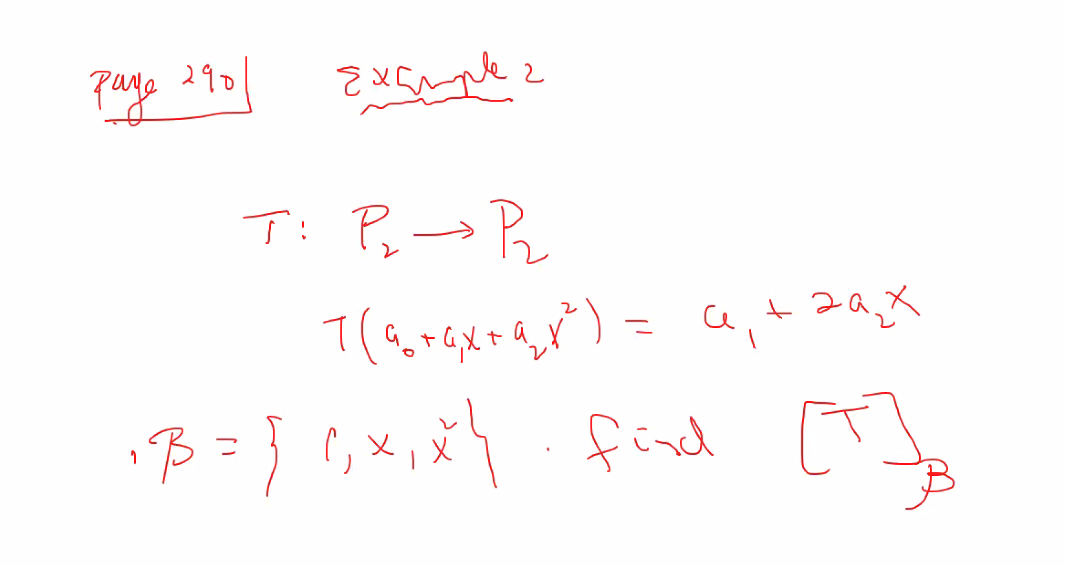 Page 290 Example 2
T: P₂ → P₂
T(a₀+a₁x+a₂x²) = a₁ + 2a₂x
B = { 1, x, x² } . find [T]_B